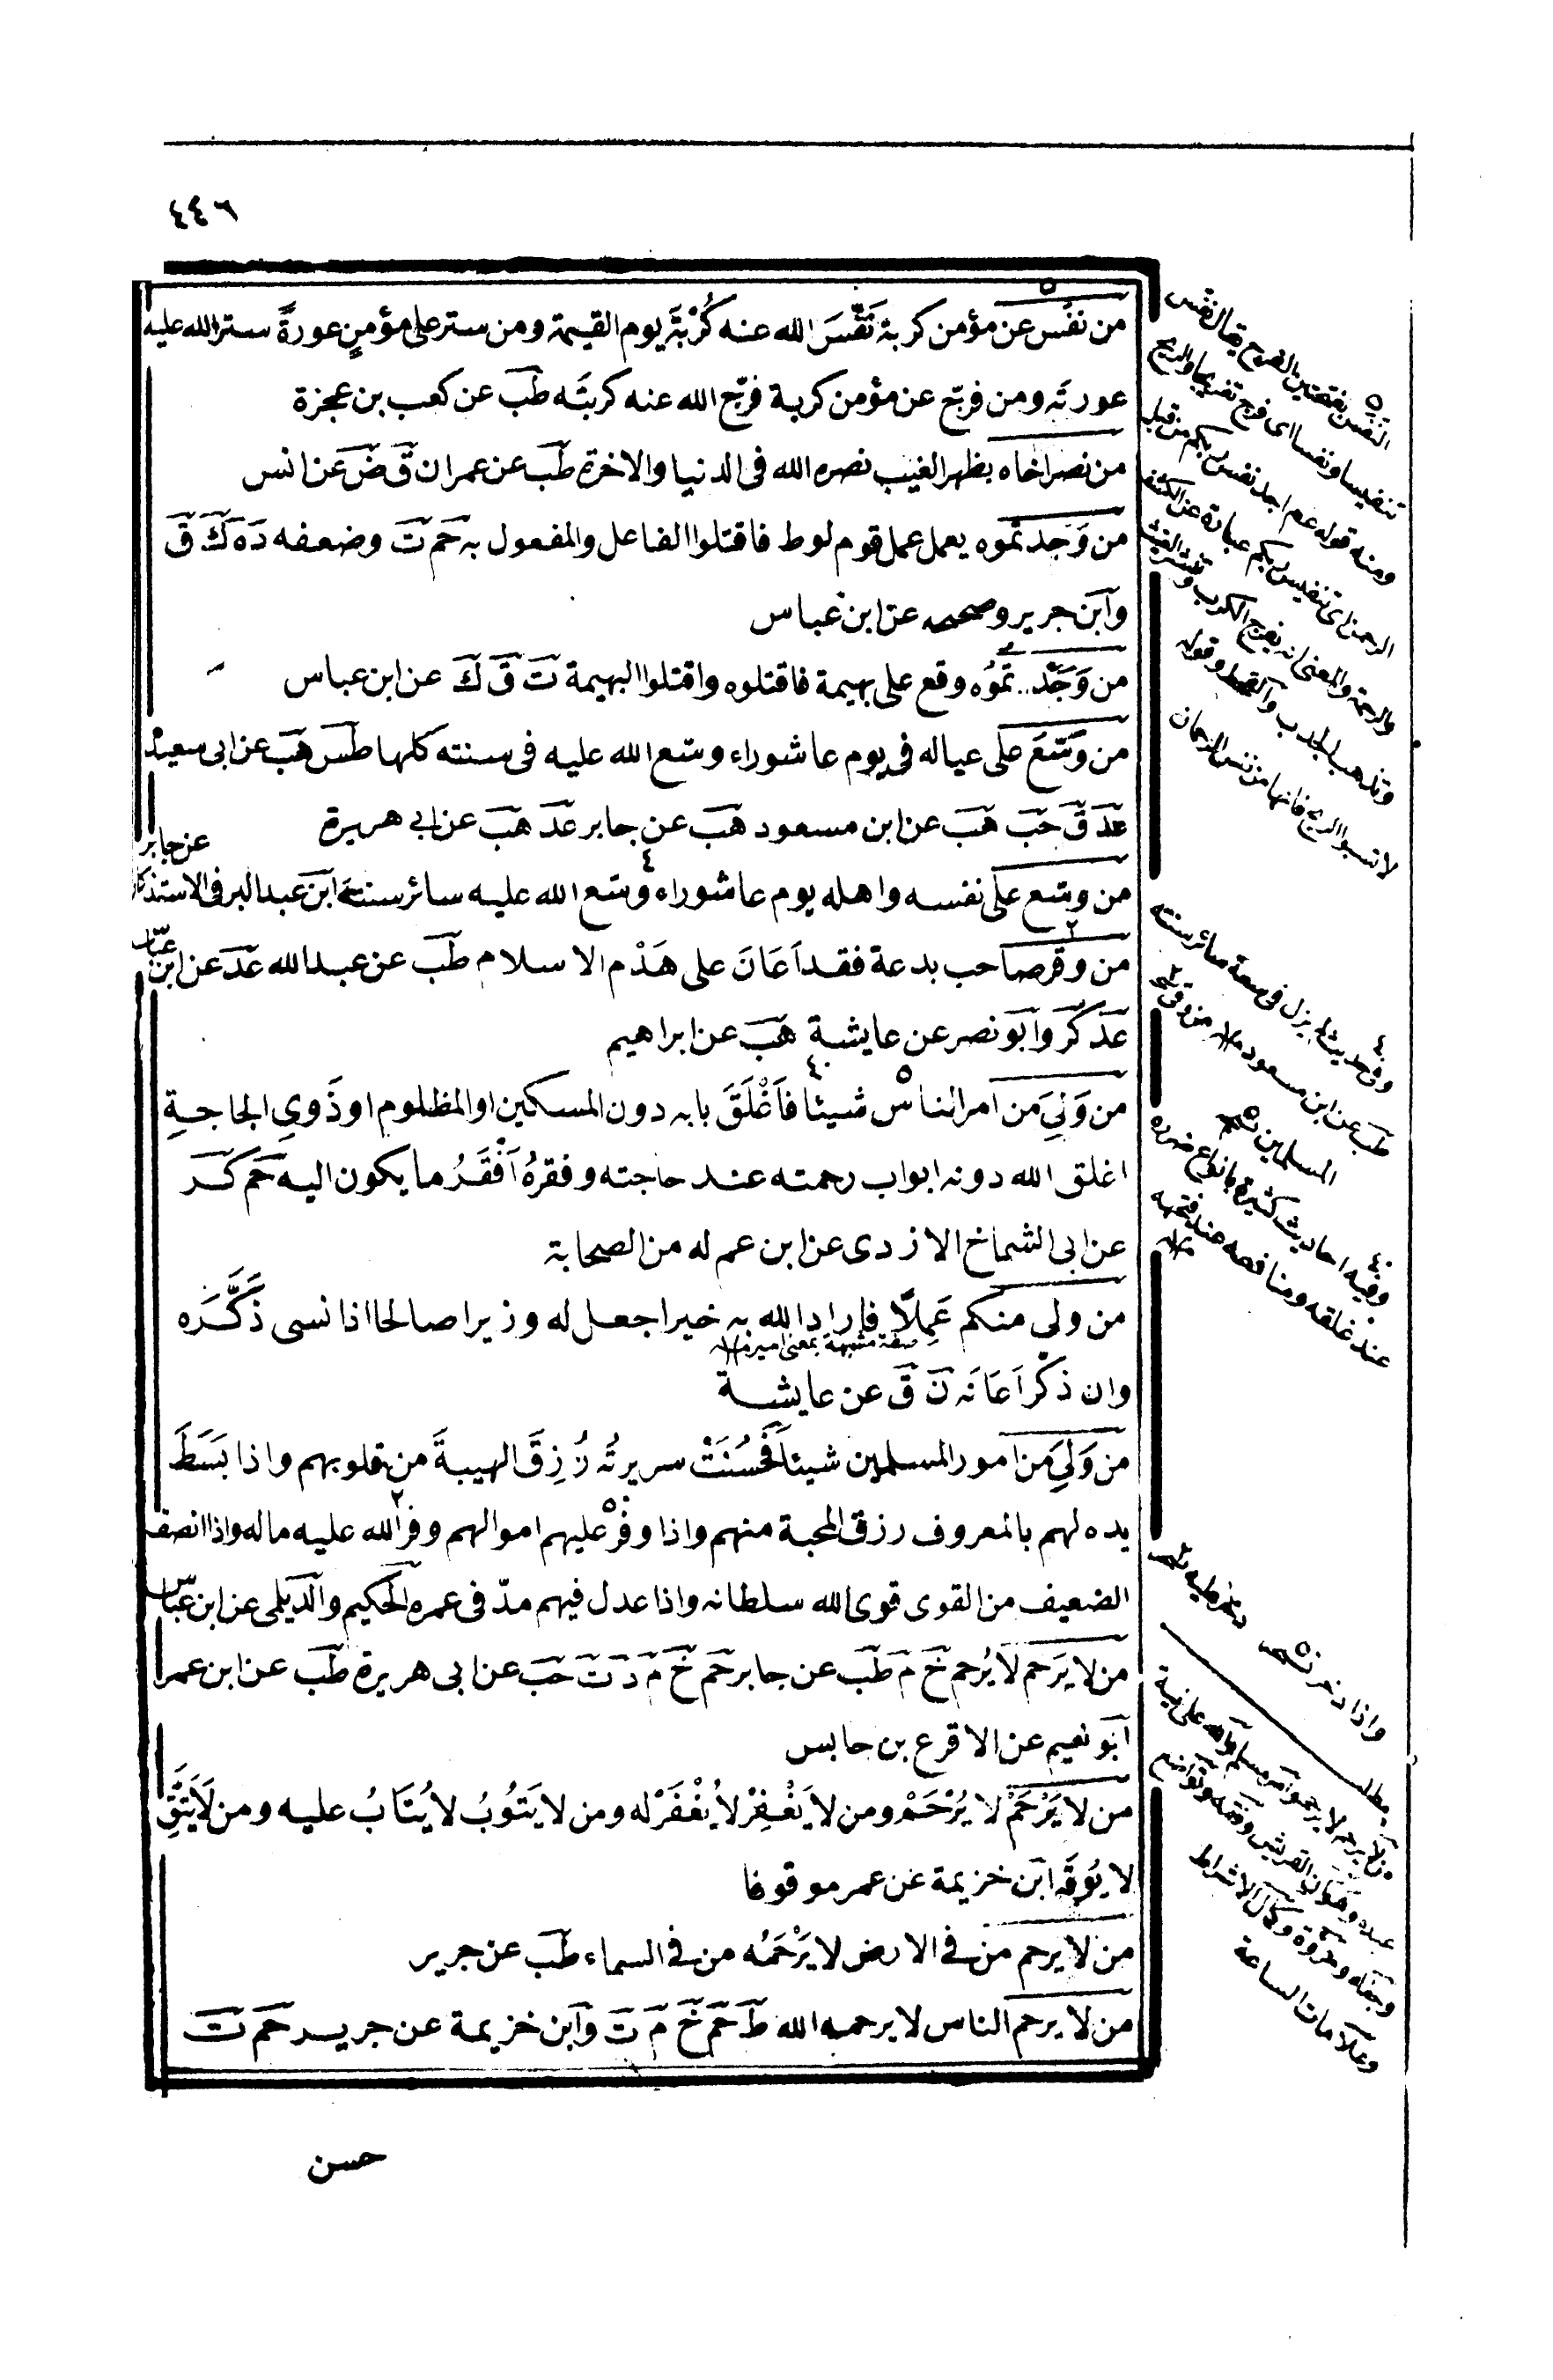 ٤٤٦
من نفس عن مؤمن كربة نَفَّسَ الله عنه كُرْبَةً يوم القيمة ومن ستر على مؤمنٍ عورةً ستر الله عليه
عورته ومن فرج عن مؤمن كربة فرج الله عنه كربته طب عن كعب بن عجزة
من نصر اخاه بظهر الغيب نصره الله فى الدنيا والاخرة طب عن عمران ق ض عن انس
من وَجَدتمُوه يعمل عمل قوم لوط فاقتلوا الفاعل والمفعول به حم ت وضعفه د ه ك ق
وابن جرير وصححه عن ابن عباس
من وَجَدتمُوه وقع على بهيمة فاقتلوه واقتلوا البهيمة ت ق ك عن ابن عباس
من وَسَّعَ على عياله فى يوم عاشوراء وسّع الله عليه فى سنته كلها طس هب عن ابى سعيد
عد ق حب هب عن ابن مسعود هب عن جابر عد هب عن ابى هريرة
من وسّع على نفسه واهله يوم عاشوراء وسّع الله عليه سائر سنته ابن عبد البر فى الاستذكار عن جابر
من وقر صاحب بدعة فقد اَعَانَ على هَدْم الاسلام طب عن عبد الله عد عن ابن عباس
عد كر وابو نصر عن عايشة هب عن ابراهيم
من وَلِيَ من امر الناس شيئا فاَغْلَقَ بابه دون المسكين او المظلوم او ذَوِي الحاجةِ
اغلق الله دونه ابواب رحمته عند حاجته وفقرهُ اَفْقَرُ ما يكون اليه حم كر
عن ابى الشماخ الازدى عن ابن عم له من الصحابة
من ولى منكم عَمِلًا فاراد الله به خيرا جعل له وزيرا صالحا اذا نسى ذَكَّرَه
صفة مشبهة بمعنى امير
وان ذكر اَعَانَه ن ق عن عايشة
من وَلِيَ من امور المسلمين شيئا فَحَسُنَتْ سريرتُه رُزِقَ الهيبةَ من قلوبهم واذا بَسَطَ
يده لهم بالمعروف رزق المحبة منهم واذا وفر عليهم اموالهم وفر الله عليه ماله واذا انصف
الضعيف من القوى قوى الله سلطانه واذا عدل فيهم مدّ فى عمره الحكيم والديلمى عن ابن عباس
من لا يَرحم لا يُرحم خ م طب عن جابر حم خ م د ت حب عن ابى هريرة طب عن ابن عمر
ابو نعيم عن الاقرع بن حابس
من لا يَرْحَمْ لا يُرْحَمْ ومن لا يَغْفِرْ لا يُغْفَرْ له ومن لا يَتُوبُ لا يُتَابُ عليه ومن لا يَتَّقِ
لا يُوَقَه ابن خزيمة عن عمر موقوفا
من لا يرحم من فى الارض لا يَرْحَمُه من فى السماء طب عن جرير
من لا يرحم الناس لا يرحمه الله ط حم خ م ت وابن خزيمة عن جرير حم ت
حسن
النفس بفتحتين الفرج يقال نفس
تنفيسا ونفسا اى فرج تفريجا والريح
ومنه قوله عم اجد نفس ربكم من قبل
والرحمة والمعنى انه يفرج الكرب وينشر الغيث
ويذهب الجدب والقحط وقوله
لا تسبوا الريح فانها من نفس الرحمان
وفى حديث لم يزل فى سعة سائر سنته
طب عن ابن مسعود
المسلمين
وفيه احاديث كثيرة بانواع
عند غلقه ومنافعه عند فتحه
وعلامات الساعة